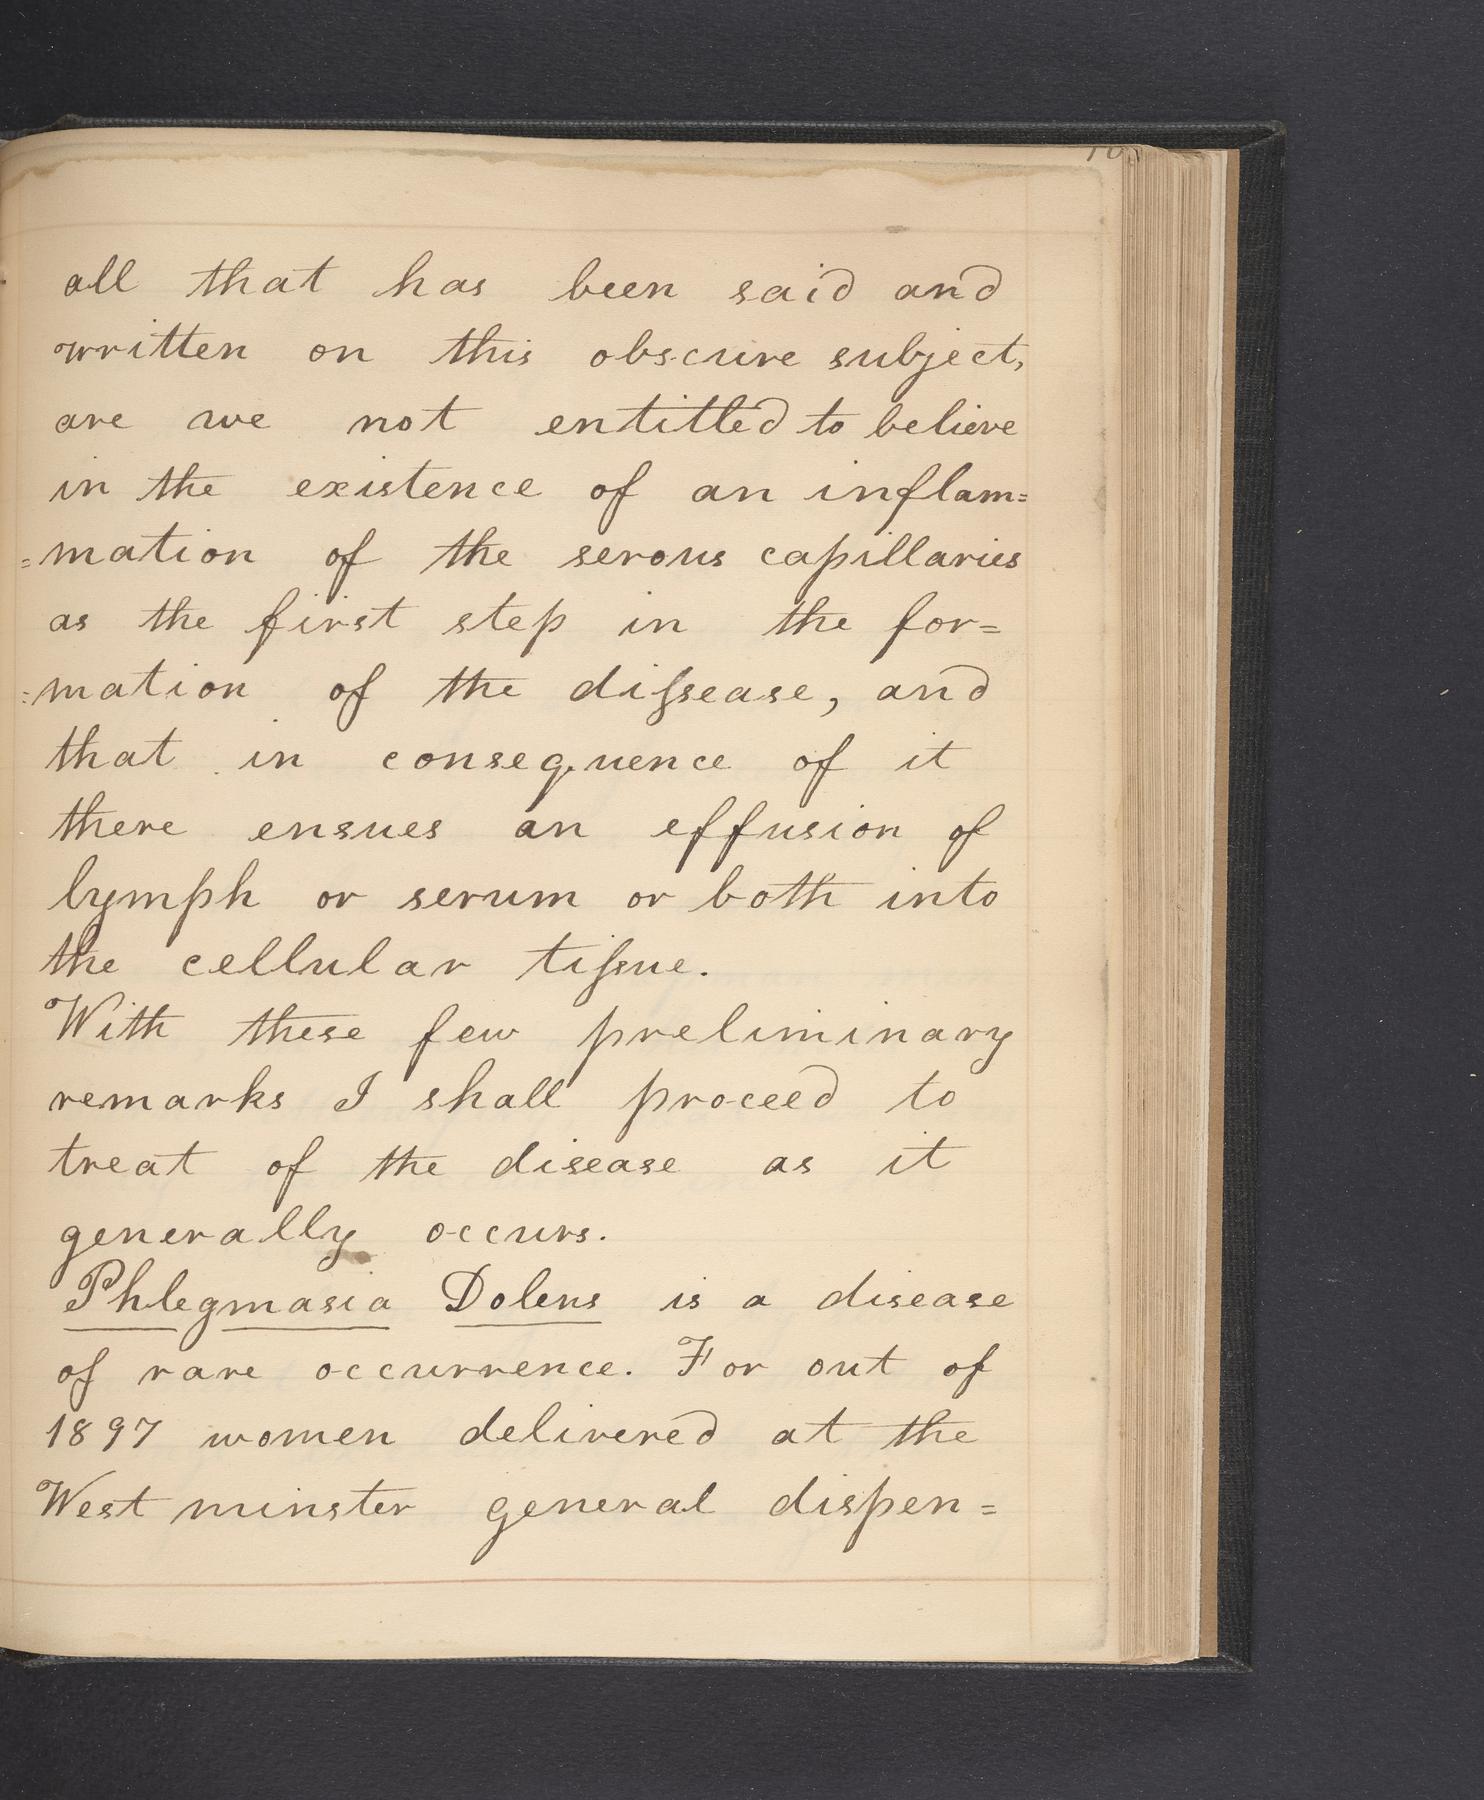 all that has been said and
written on this obscure subject,
are we not entitled to believe
in the existence of an inflam=
=mation of the serous capillaries
as the first step in the for=
=mation of the disſsease, and
that in consequence of it
there ensues an effusion of
lymph or serum or both into
the cellular tiſsue.
With these few preliminary
remarks I shall proceed to
treat of the disease as it
generally occurs.
Phlegmasia Dolens is a disease
of rare occurrence. For out of
1897 women delivered at the
West minster general dispen=